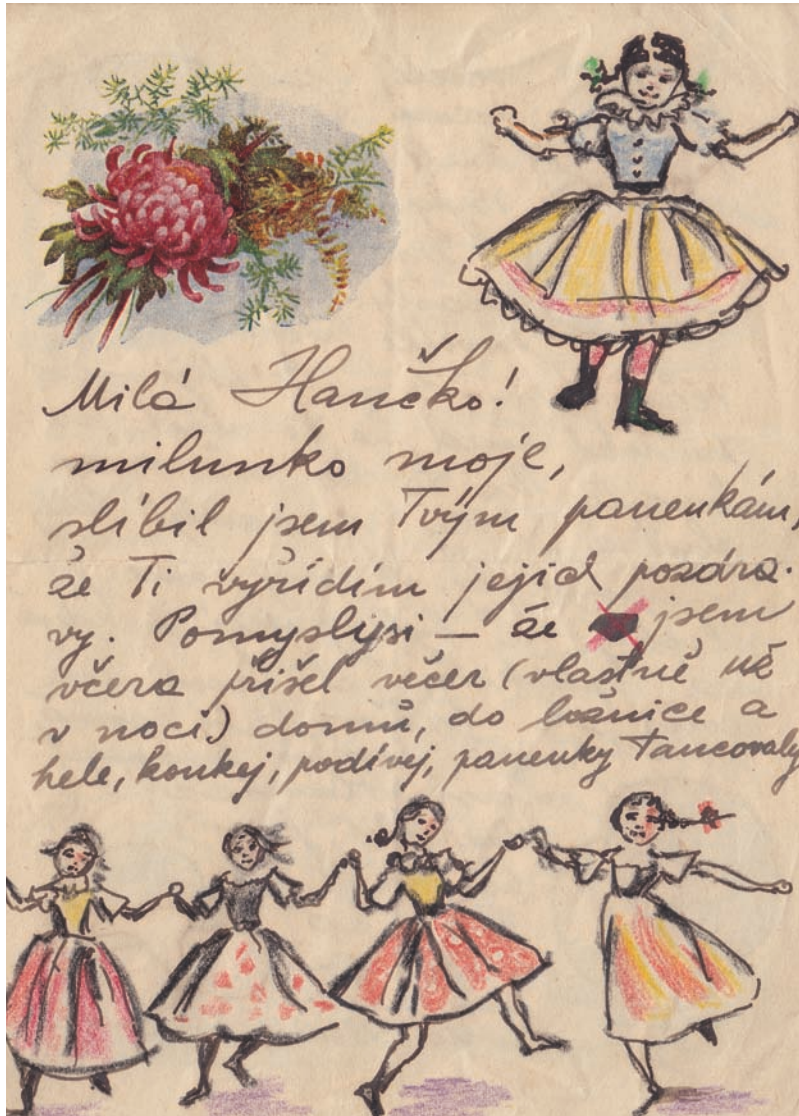 Milá Haničko!
milunko moje,
slíbil jsem Tvým panenkám,
že Ti vyřídím jejich pozdra-
vy. Pomyslysi — že jsem
včera přišel večer (vlastně už
v noci) domů, do ložnice a
hele, koukej, podívej, panenky tancovaly